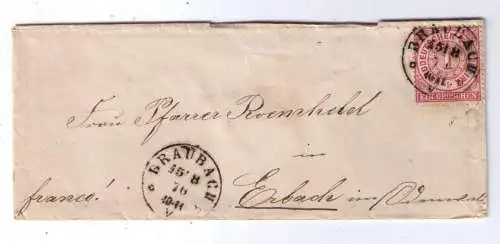 BRAUBACH
15/8
NORDDEUTSCHER
1
EIN GROSCHEN
Frau Pfarrer Roemheld
in
BRAUBACH
15/8
70
10-11
V
franco!
Erbach im Odenwald